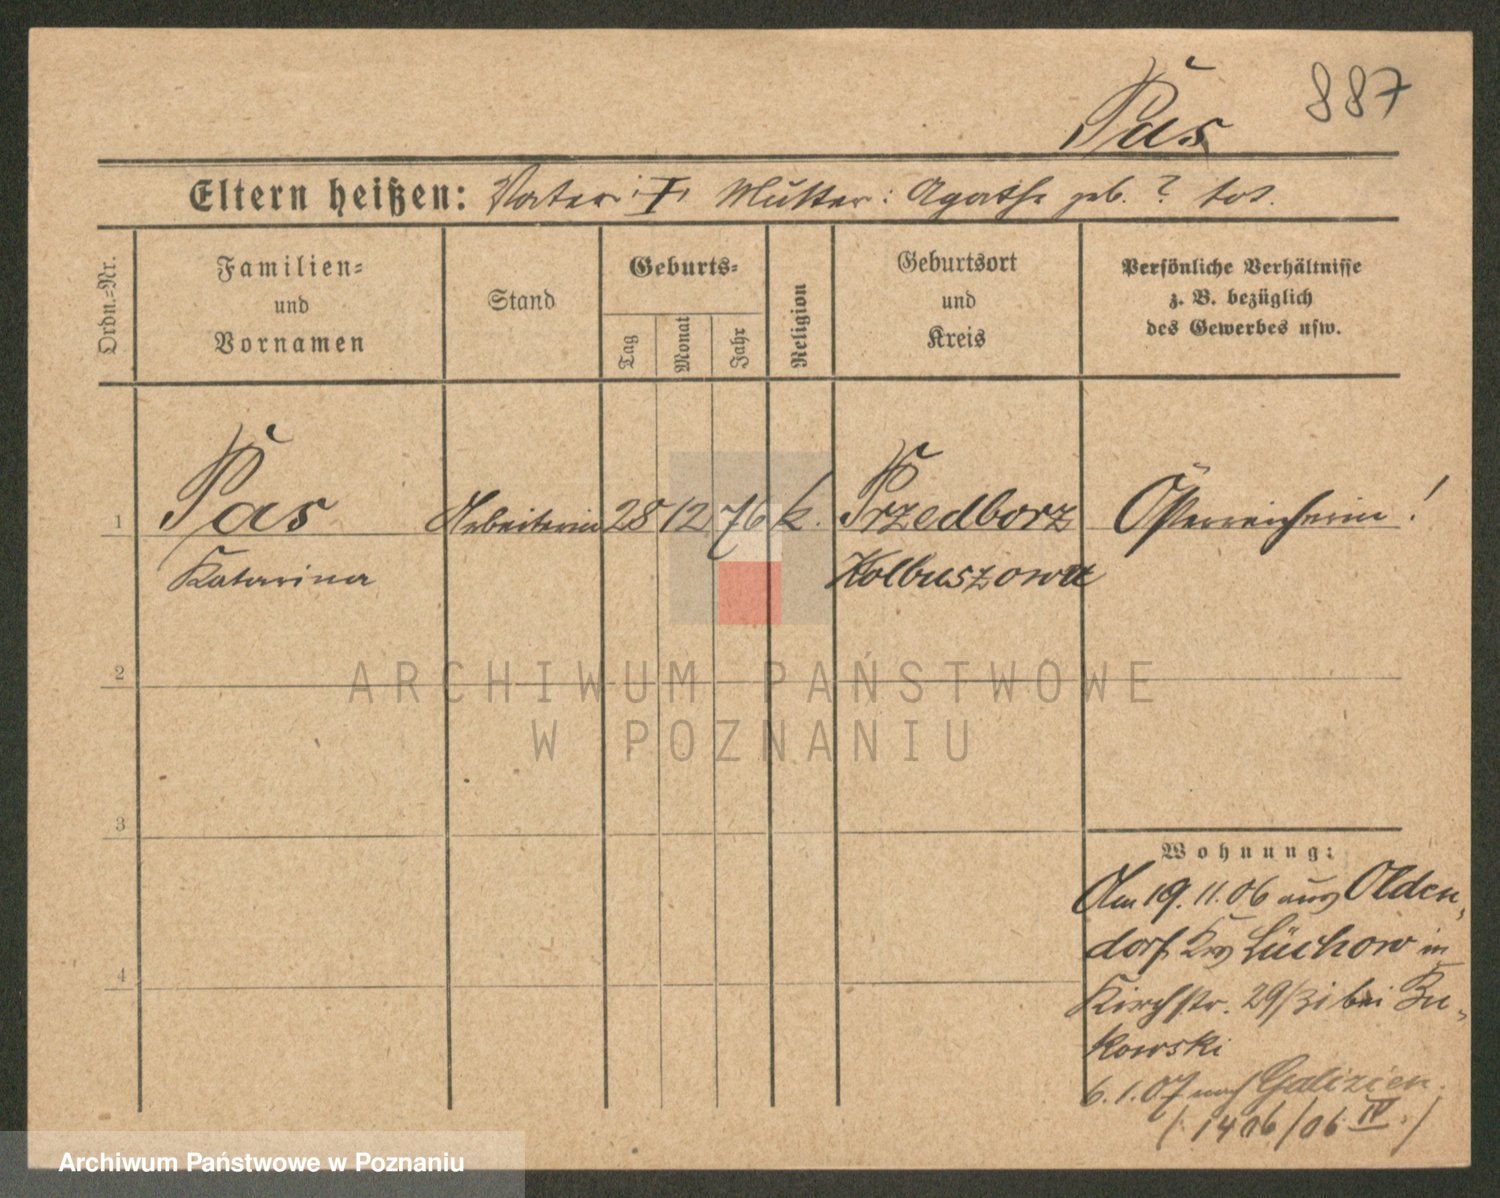 887
Pas
Eltern heißen: Vater: Mutter: Agathe geb. ? tot.
Ordn.-Nr.
Familien- und Vornamen
Stand
Geburts-
Tag
Monat
Jahr
Religion
Geburtsort und Kreis
Persönliche Verhältnisse
z. B. bezüglich
des Gewerbes usw.
1 Pas Arbeiterin 28 12 76 k. Przedborz Österreicherin!
Katarina Kolbuszowa
2
3
4
Wohnung:
Am 19.11.06 aus Olden-
dorf Krs Lüchow in
Kirchstr. 29/31 bei Zu-
kowski
6.1.07 nach Galizien.
(1406/06 IV.)
ARCHIWUM PAŃSTWOWE
W POZNANIU
Archiwum Państwowe w Poznaniu